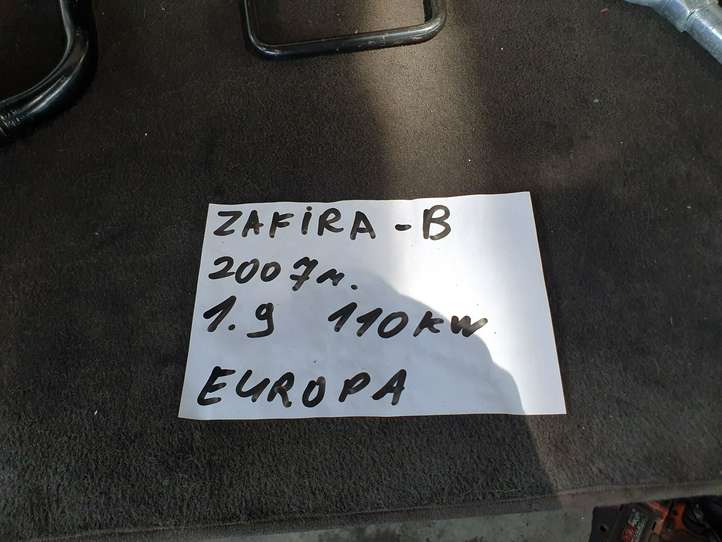 ZAFiRA - B
2007м.
1.9 110KW
EUROPA